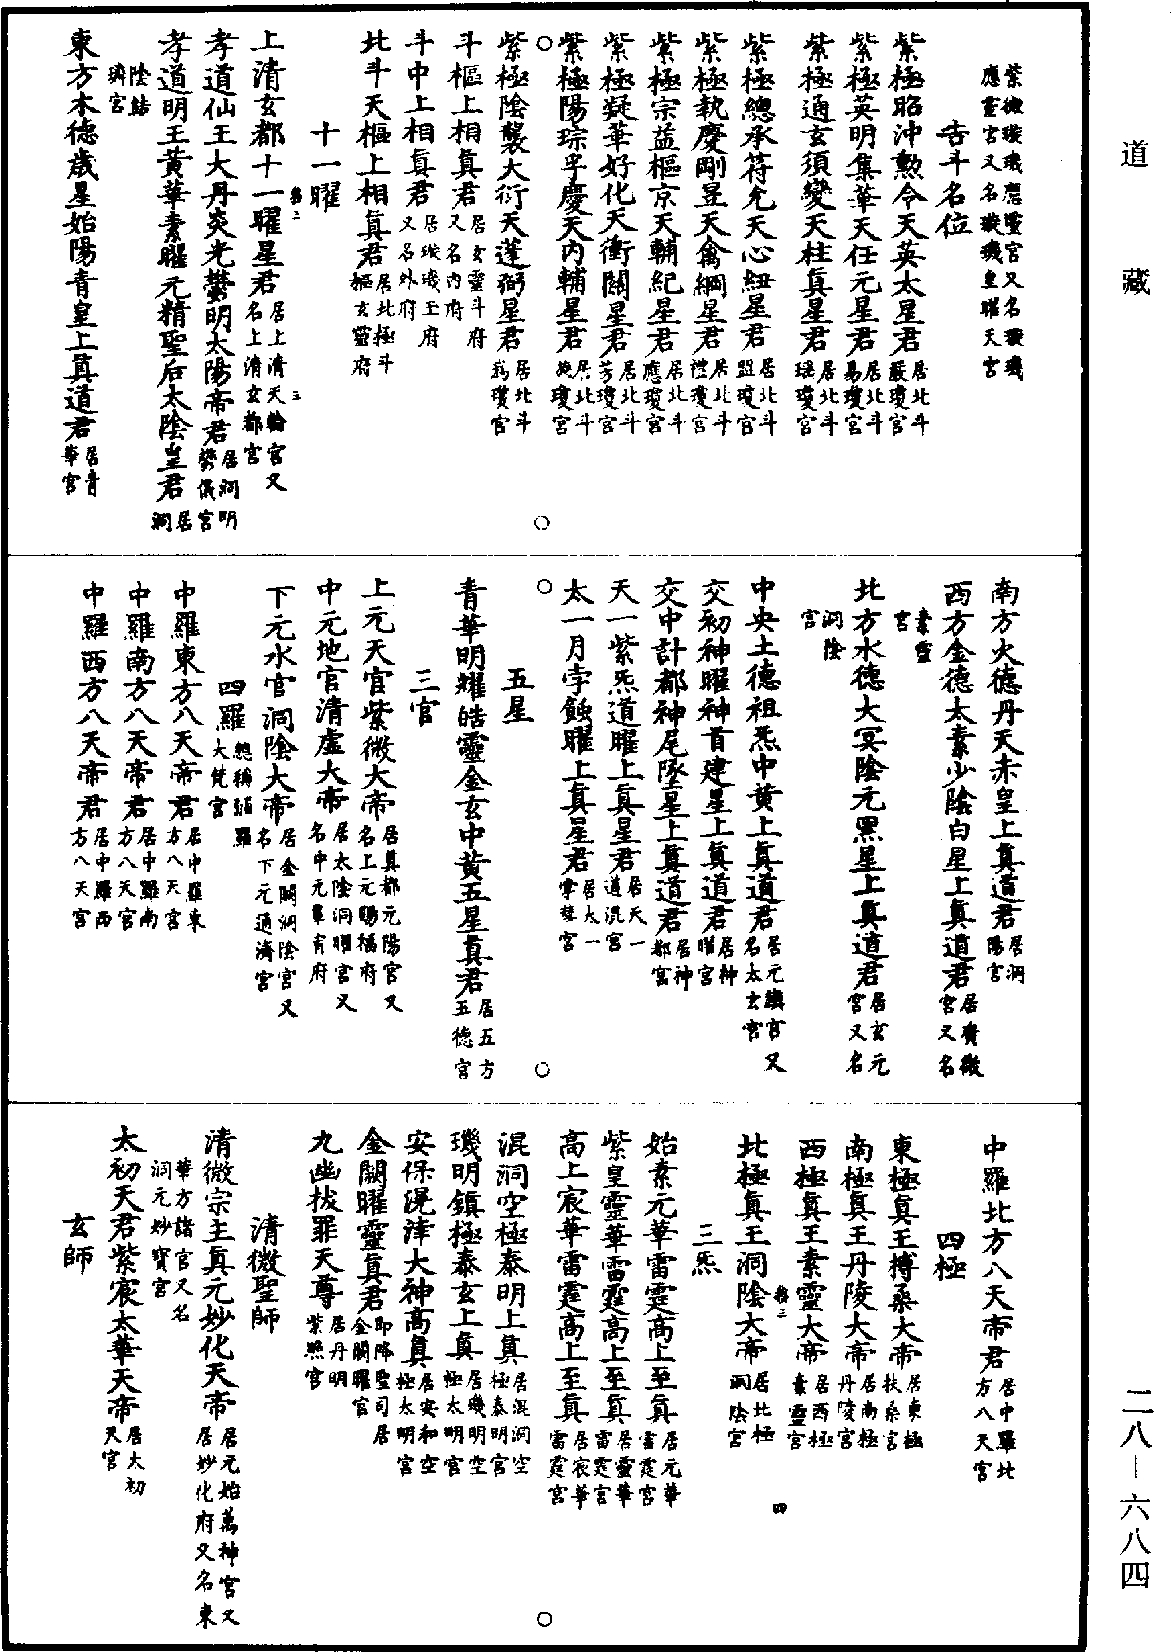 道藏
紫微璇璣應靈宮又名璇璣
應靈宮又名璇璣皇曜天宮
吉斗名位
紫極昭沖勲令天英太星君居北斗嚴瓊宮
紫極英明集華天任元星君居北斗昜瓊宮
紫極通玄須變天柱真星君居北斗瑶瓊宮
紫極總承符允天心紐星君居北斗盟瓊宮
紫極執慶剛昱天禽綱星君居北斗禮瓊宮
紫極宗益樞京天輔紀星君居北斗應瓊宮
紫極凝華好化天衝關星君居北斗芳瓊宮
紫極陽琮孚慶天內輔星君居北斗瓊宮
紫極陰襲大衍天蓬弼星君居北斗瓊宮
斗樞上相真君居玄靈斗府又名內府
斗中上相真君居璇璣玉府又名外府
北斗天樞上相真君居北極斗樞玄靈府
十一曜
上清玄都十一曜星君居上清天輪宮又名上清玄都宮
孝道仙王大丹炎光鬱明太陽帝君居洞明鬱儀宮
孝道明王黃華素曜元精聖后太陰皇君居洞
陰結璘宮
東方木德歲星始陽青皇上真道君居青華宮
南方火德丹天赤皇上真道君居洞陽宮
西方金德太素少陰白星上真道君居贵微宮又名
素靈宮
北方水德大冥陰元黑星上真道君居玄元宮又名
洞陰宮
中央土德祖炁中黄上真道君居元鎮宮又名太玄宮
交初神曜神首建星上真道君居神曜宮
交中計都神尾墜星上真道君居神都宮
天一紫炁道曜上真星君居天一道混宮
太一月孛蝕曜上真星君居太一掌彗宮
五星
青華明耀皓靈金玄中黄五星真君居五方五德宮
三官
上元天官紫微大帝居真都元陽宮又名上元賜福府
中元地官清虛大帝居太陰洞曜宮又名中元宥府
下元水官洞陰大帝居金闕洞陰宮又名下元通濟宮
四羅總稱彌羅大梵宮
中羅東方八天帝君居中羅東方八天宮
中羅南方八天帝君居中羅南方八天宮
中羅西方八天帝君居中羅西方八天宮
中羅北方八天帝君居中羅北方八天宮
四極
東極真王搏桑大帝居東極扶桑宮
南極真王丹陵大帝居南極丹陵宮
西極真王素靈大帝居西極素靈宮
北極真王洞陰大帝居北極洞陰宮
三炁
始素元華雷霆高上至真居元華雷霆宮
紫皇靈華雷霆高上至真居靈華雷霆宮
高上宸華雷霆高上至真居宸華雷霆宮
混洞空極泰明上真居混洞空極泰明宮
璣明鎮極泰玄上真居璣明空極太明宮
安保滉津大神高真居安和空極太明宮
金闕曜靈真君即降聖司居金闕曜宮
九幽拔罪天尊居丹明紫熙宮
清微聖師
清微宗主真元妙化天帝居元始萬神宮又居妙化府又名東
華方諸宮又名洞元妙寶宮
太初天君紫宸太華天帝居太初天宮
玄師
二八—六八四